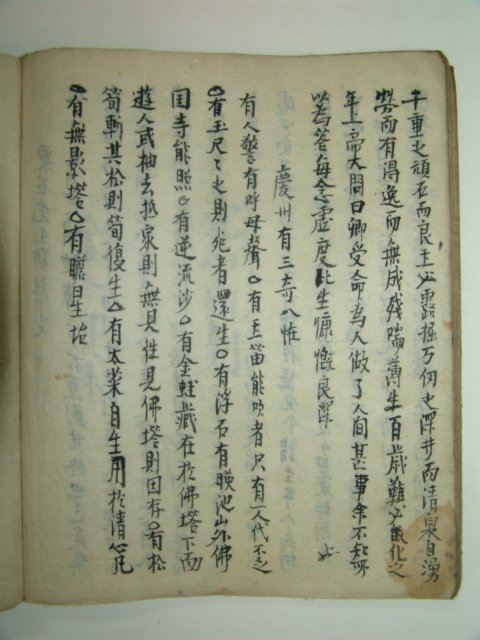 千重之頑石而良玉必露掘万仞之深井而清泉自湧
勞而有得逸而無成殘喘薄生百歲難必散化之
年上帝大問曰卿受命為人做了人間甚事余不知所
以為答每念虛度此生慷慨良深
慶州有三奇八怪
有人警有呼母聲○有玉笛能吹者只有一人代不乏
○有玉尺之也則死者還生○有浮石有映池山外佛
国寺能照○有逆流沙○有金蛙藏在於佛塔下而
遊人或抽去抵家則無見往見佛塔則因存○有松
筍斬其松則筍復生○有太菜自生用於清心凡
○有無影塔○有瞻星坮